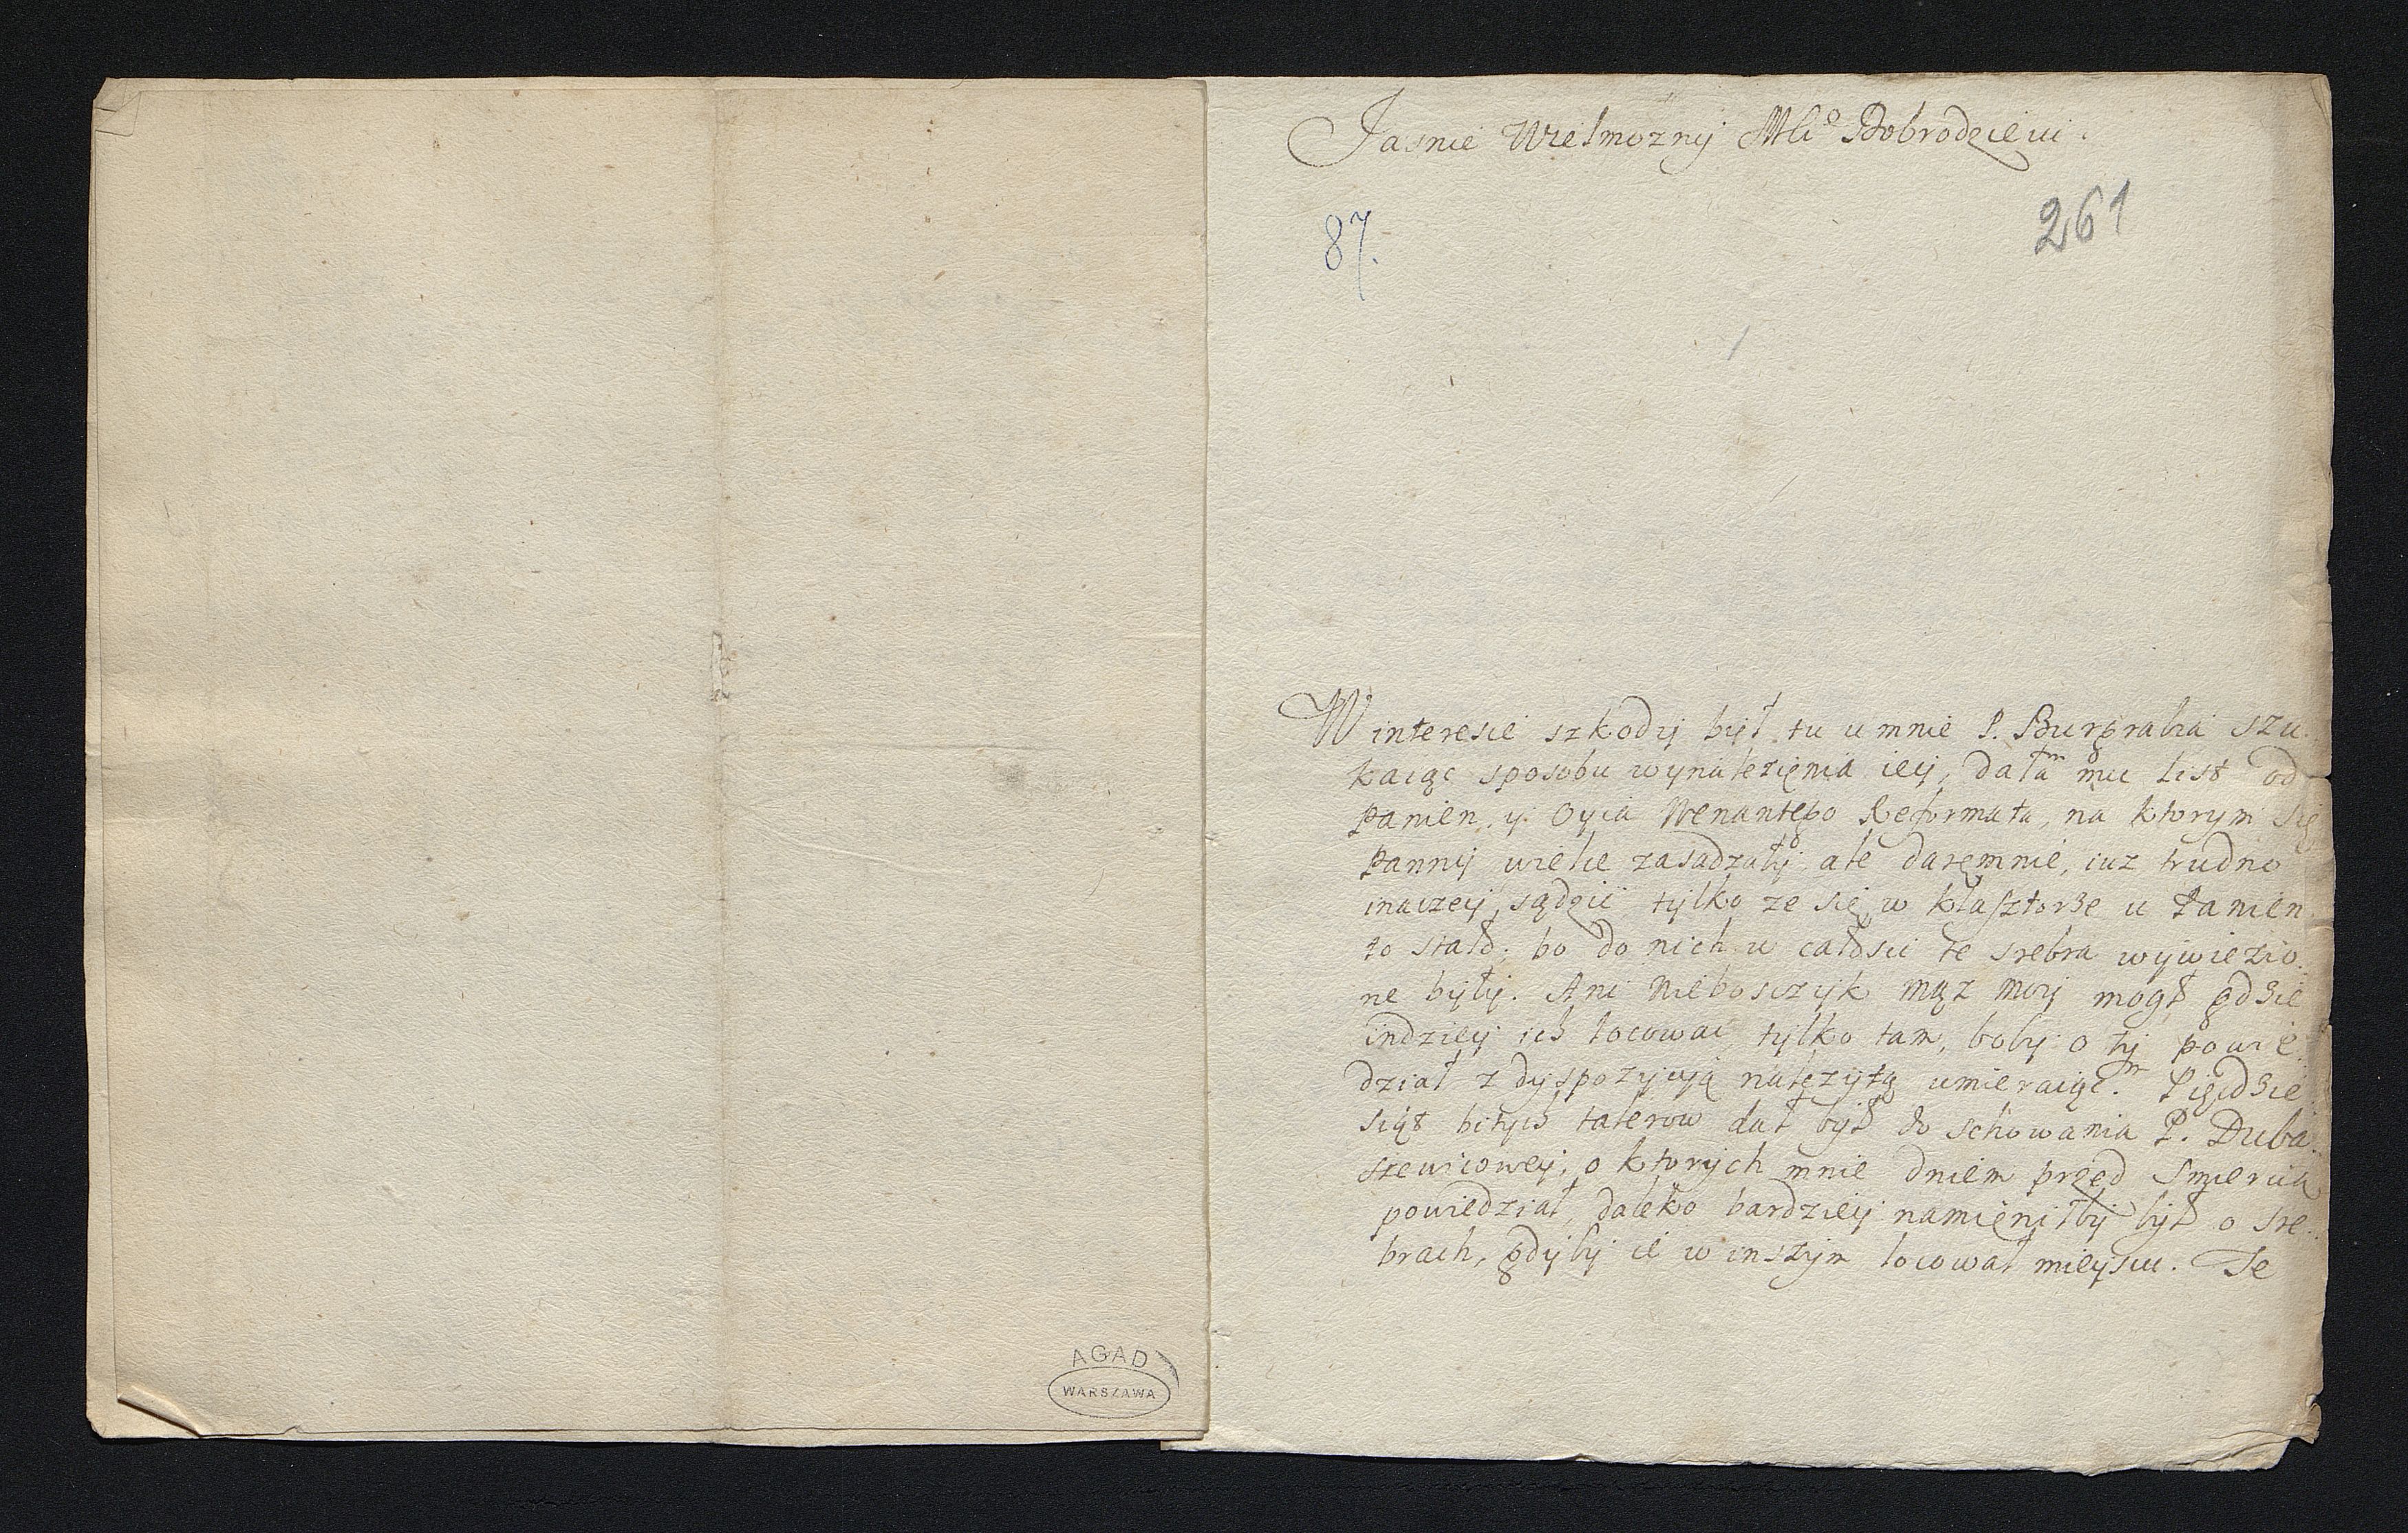 Jasnie Wielmozny Mci Dobrodzieiu.
87.
261
W interesie szkody był tu u mnie P. Burgrabia szu
kaiąc sposobu wynalezięnia iey, dałam mu list od
Panien, y Oyca Wenantego Reformata, na ktorym się
Panny wielie zasadzały ale daręmnie, iuz trudno
inaczey sądzić tylko ze się w klasztorze u Panien
to stało, bo do nich w całosci te srebra wywiezio
ne były. Ani Nieboszczyk mąz moy mogł gdzie
indziey ich locowac tylko tam, boby o ty powie
dział z dyspozycyją nalezytą umieraiąc. Pięcdzie
siąt bitych talerow dał był do schowania P. Duba
siewicowey, o ktorych mnie dniem przed smiercią
powiedział, daleko bardziey namieniłby był o sre
brach, gdyby ie w inszym locował mieyscu. Te
AGAD
WARSZAWA